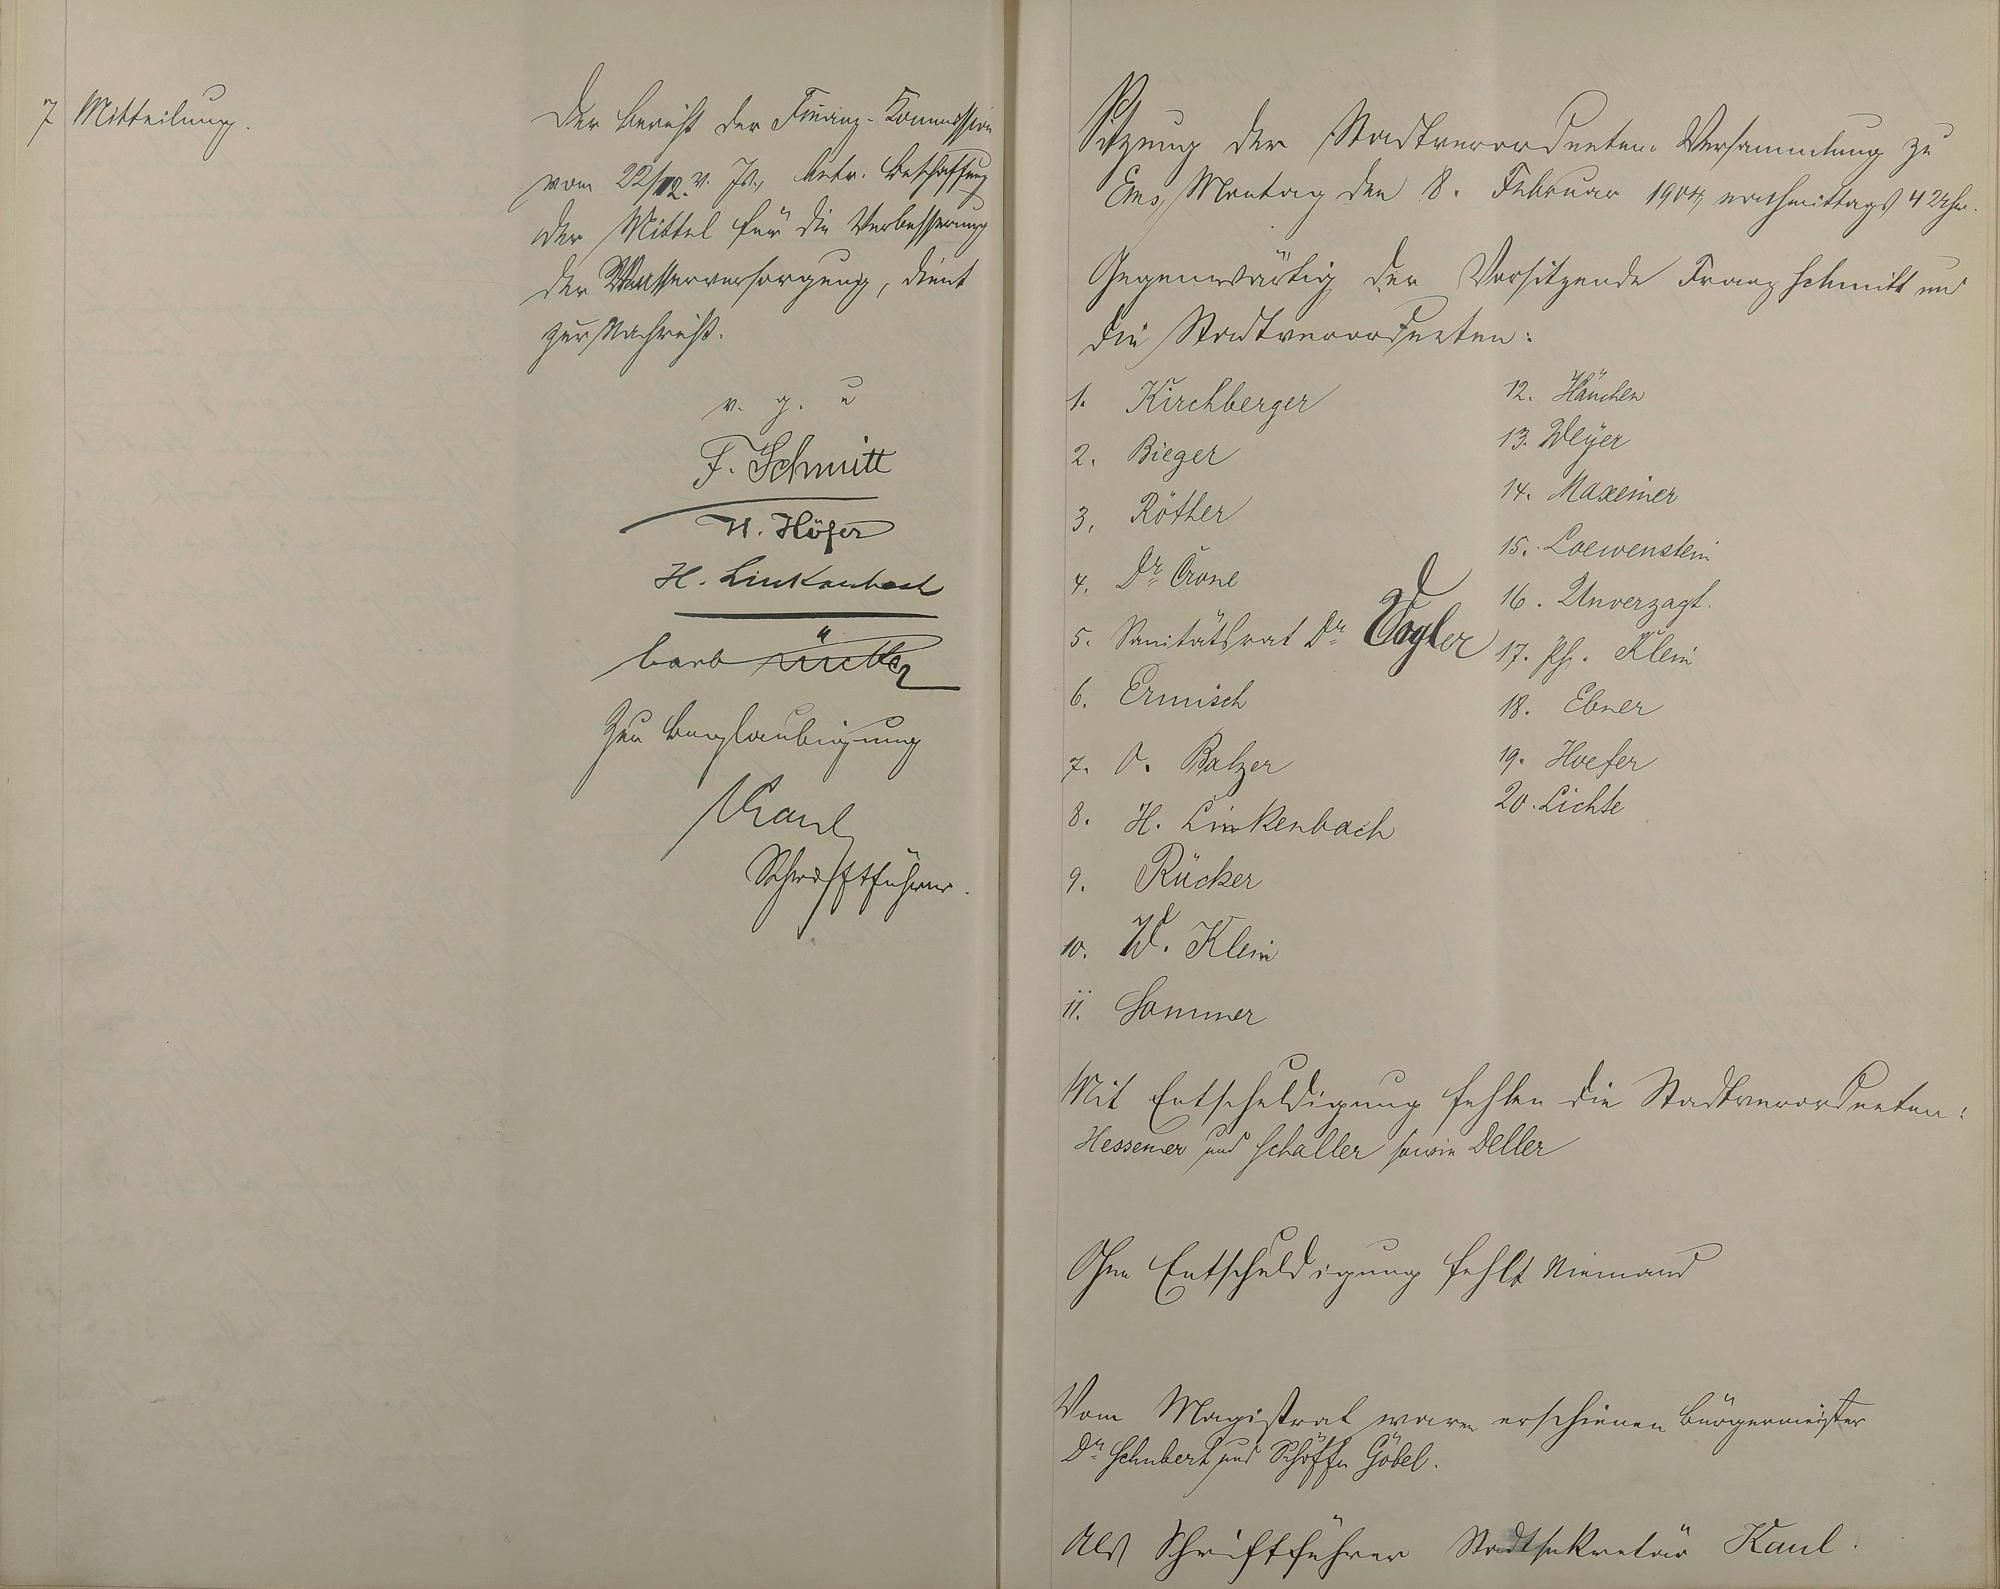 7 Mitteilung.
Der Bericht der Finanz-Kommission
vom 22/12. v. Js., betr. Beschaffung
der Mittel für die Verbesserung
der Wasserversorgung, dient
zur Nachricht.
v. g. u
F. Schmitt
H. Höfer
H. Linkenbach
Carl Rücker
Zur Beglaubigung
Kaul
Schriftführer.
Sitzung der Stadtverordneten-Versammlung zu
Ems, Montag den 8. Februar 1904, nachmittags 4 Uhr.
Gegenwärtig der Vorsitzende Franz Schmitt und
die Stadtverordneten:
1. Kirchberger
2. Bieger
3. Röther
4. Dr. Crone
5. Sanitätsrat Dr. Vogler
6. Ermisch
7. O. Balzer
8. H. Linkenbach
9. Rücker
10. W. Klein
11. Sommer
12. Hänchen
13. Weyer
14. Maxeiner
15. Loewenstein
16. Unverzagt.
17. Ph. Klein
18. Ebner
19. Hoefer
20. Lichte
Mit Entschuldigung fehlen die Stadtverordneten:
Hessemer und Schaller sowie Deller
Ohne Entschuldigung fehlt Niemand
Vom Magistrat waren erschienen Bürgermeister
Dr. Schubert und Schöffe Göbel.
Als Schriftführer Stadtsekretär Kaul.